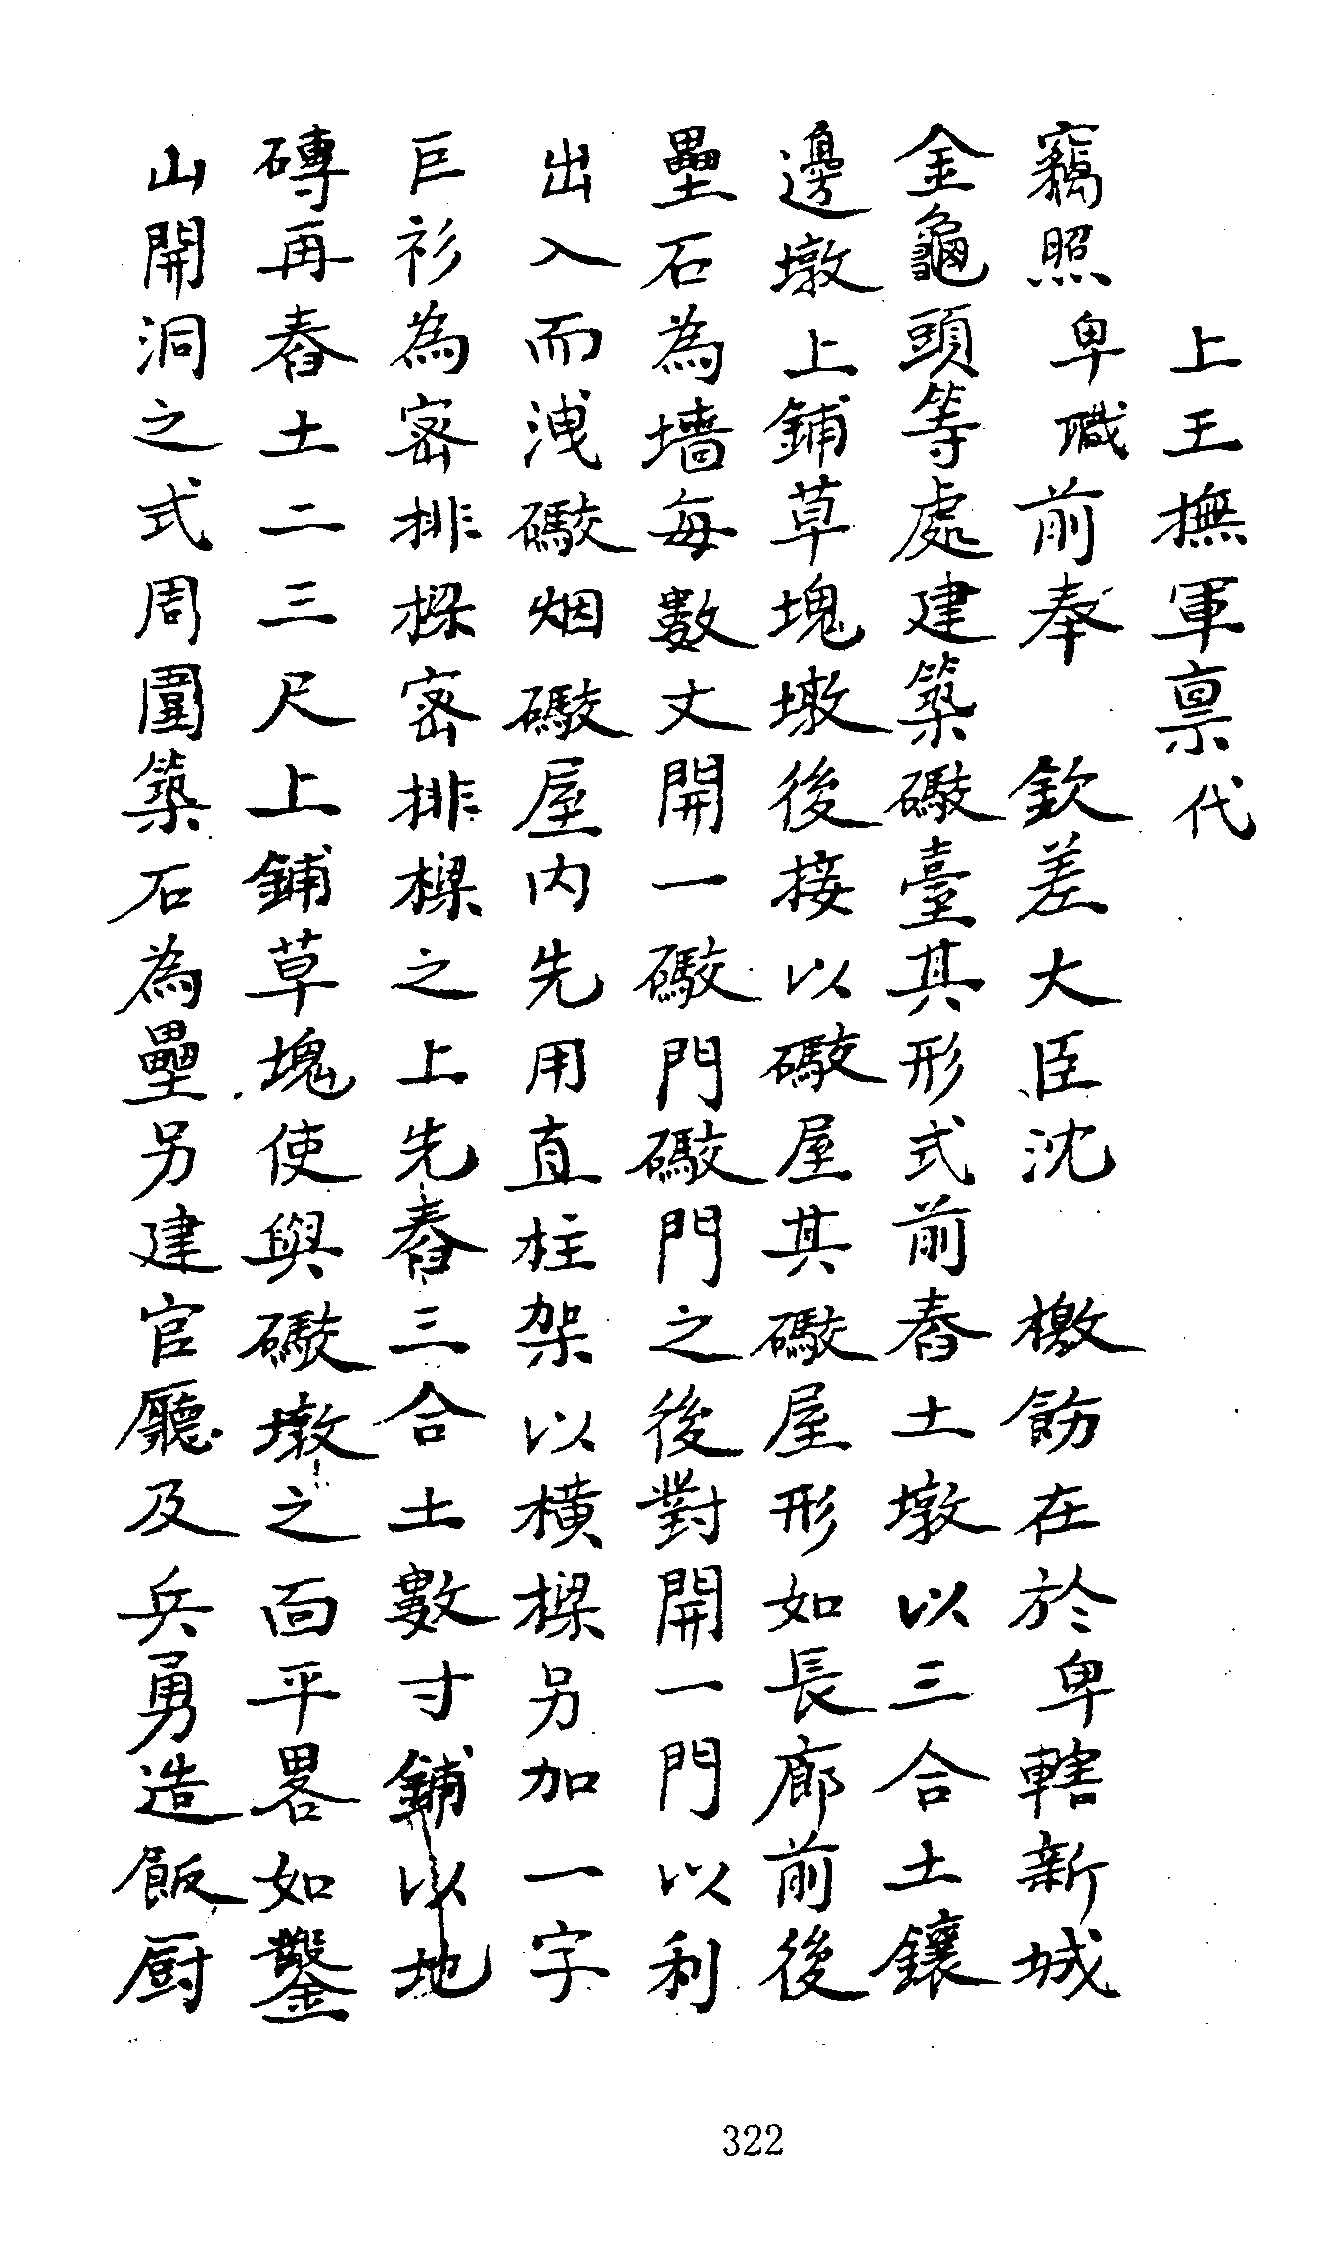 上王撫軍禀代
竊照卑職前奉　欽差大臣沈　檄飭在於卑轄新城
金龜頭等處建築礮臺其形式前舂土墩以三合土鑲
邊墩上鋪草塊墩後接以礮屋其礮屋形如長廊前後
壘石為墻每數丈開一礮門礮門之後對開一門以利
出入而洩礮烟礮屋内先用直柱架以横樑另加一字
巨衫為密排樑密排樑之上先舂三合土數寸鋪以地
磚再舂土二三尺上鋪草塊使與礮墩之面平畧如鑿
山開洞之式周圍築石為壘另建官廳及兵勇造飯厨
322